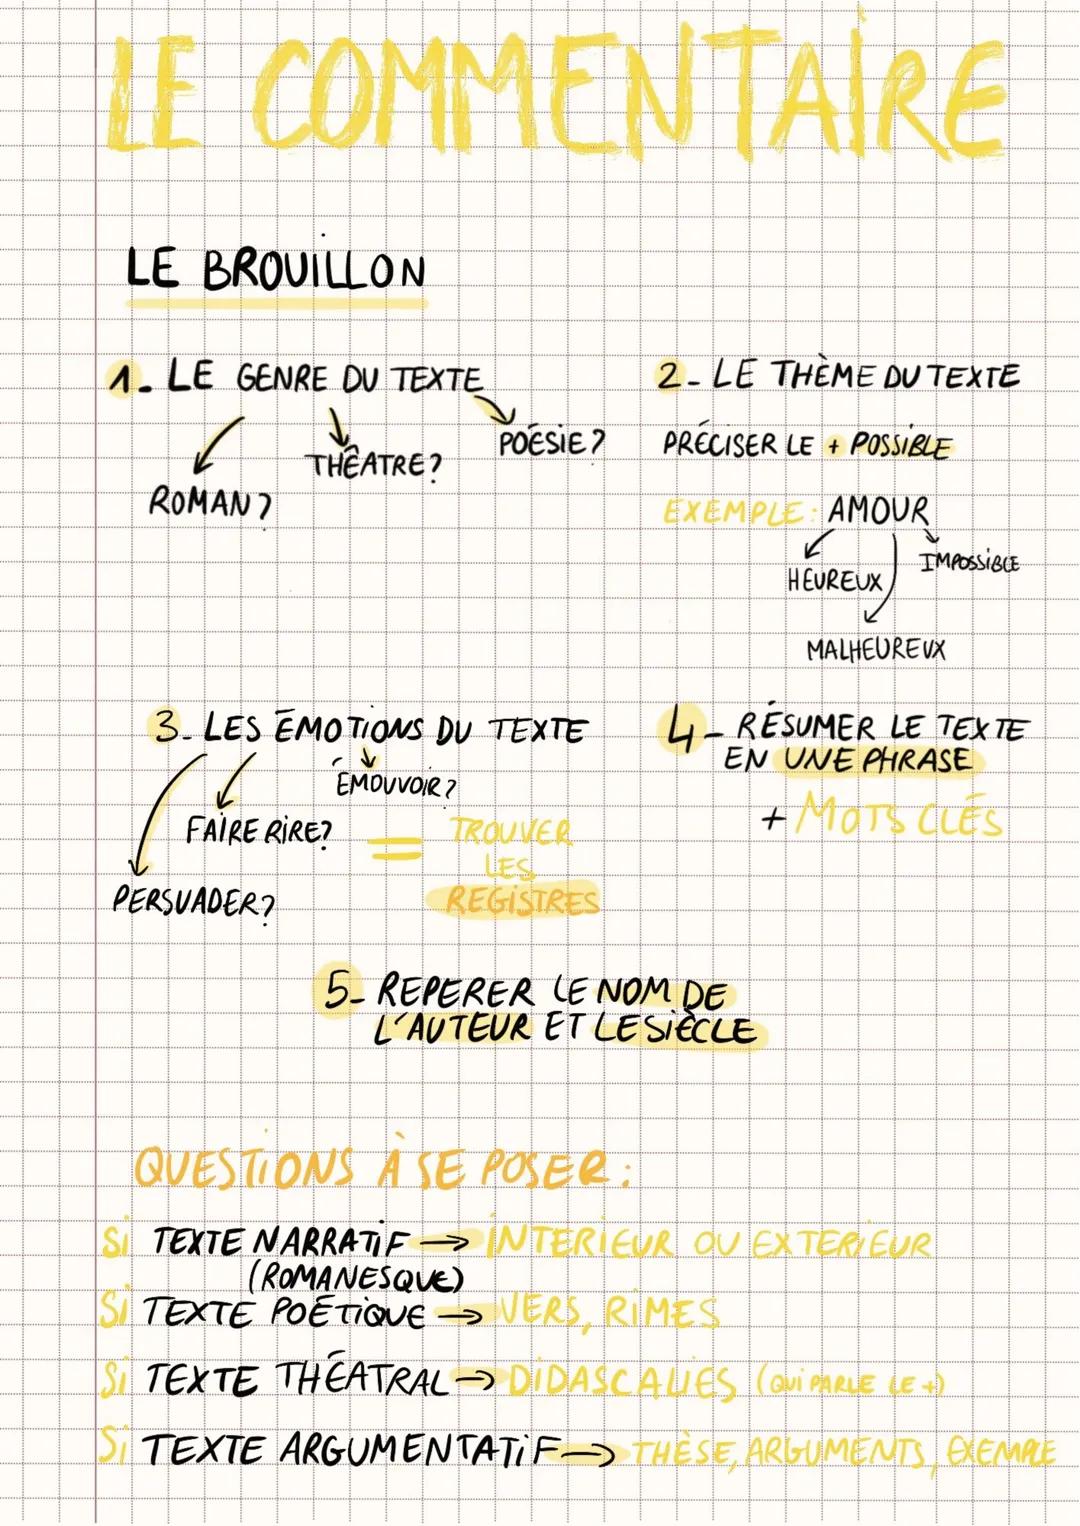 LE COMMENTAIRE
LE BROUILLON
1- LE GENRE DU TEXTE
ROMAN?
THÉATRE?
POÉSIE?
2- LE THÈME DU TEXTE
PRÉCISER LE + POSSIBLE
EXEMPLE: AMOUR
HEUREUX
IMPOSSIBLE
MALHEUREUX
3- LES ÉMOTIONS DU TEXTE
ÉMOUVOIR?
FAIRE RIRE?
PERSUADER?
= TROUVER
LES
REGISTRES
4- RÉSUMER LE TEXTE
EN UNE PHRASE
+ MOTS CLÉS
5- REPERER LE NOM DE
L'AUTEUR ET LE SIÈCLE
QUESTIONS À SE POSER:
Si TEXTE NARRATIF → INTERIEUR OU EXTERIEUR
(ROMANESQUE)
Si TEXTE POÉTIQUE → VERS, RIMES
Si TEXTE THÉATRAL → DIDASCALIES (QUI PARLE LE +)
Si TEXTE ARGUMENTATIF → THÈSE, ARGUMENTS, EXEMPLE